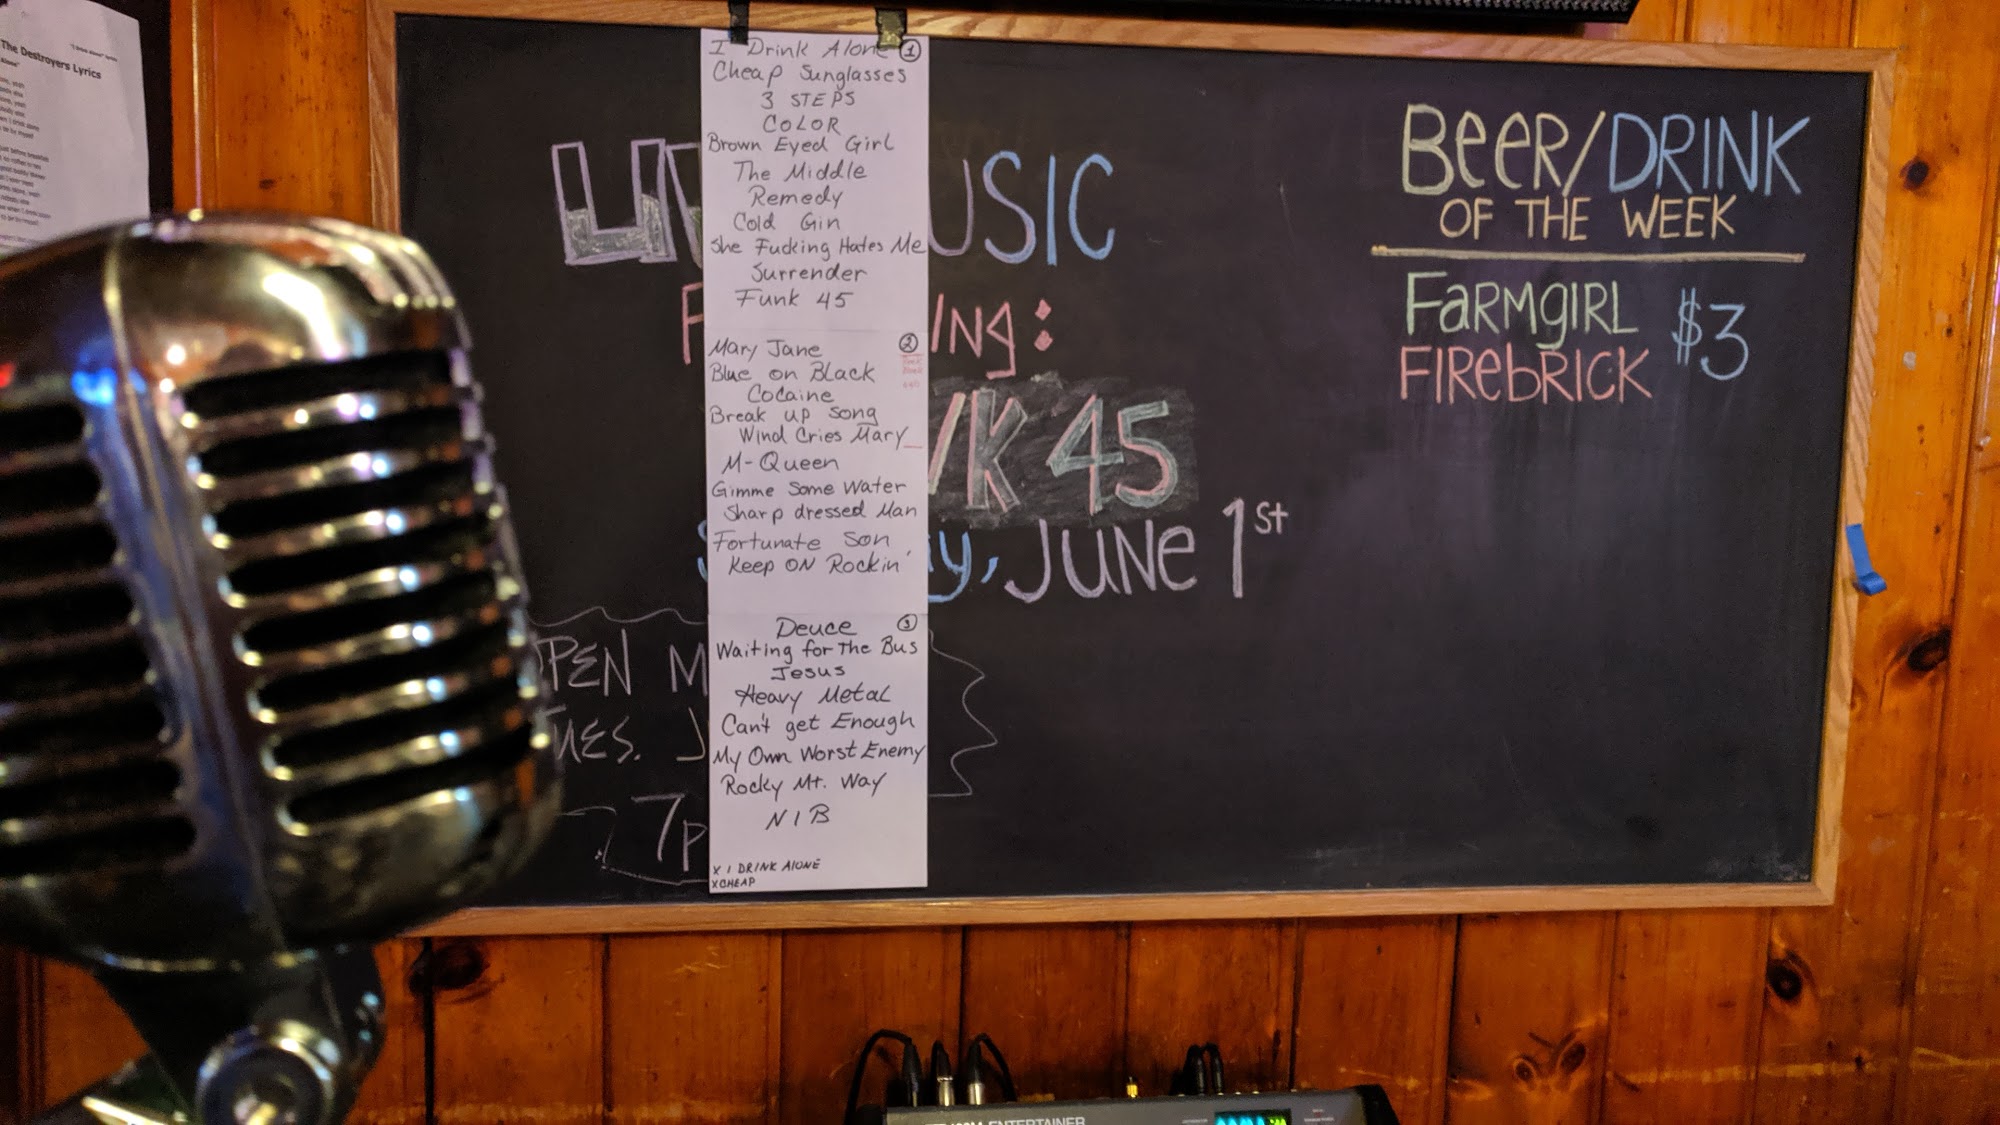 The Destroyers Lyrics
"I Drink Alone"
Alone"
I Drink Alone 1
Cheap Sunglasses
3 STEPS
COLOR
Brown Eyed Girl
The Middle
Remedy
Cold Gin
She Fucking Hates Me
Surrender
Funk 45
Mary Jane 2
Blue on Black
Cocaine
Break up song
Wind Cries Mary
M-Queen
Gimme Some Water
Sharp dressed Man
Fortunate Son
Keep ON Rockin'
Deuce 3
Waiting for The Bus
Jesus
Heavy Metal
Can't get Enough
My Own Worst Enemy
Rocky Mt. Way
NIB
X I DRINK ALONE
X CHEAP
LI USIC
F ING:
K 45
S y, JUNE 1st
PEN M
UES. J
7p
BeeR/DRINK
OF THE WEEK
FARMGIRL $3
FIREBRICK
ENTERTAINER